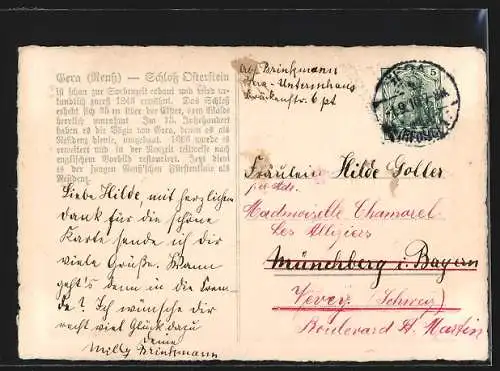 Gera (Reuß) — Schloß Osterstein
ist schon zur Sorbenzeit erbaut und wird ur-
kundlich zuerst 1248 erwähnt. Das Schloß
erhebt sich 85 m über der Elster, vom Walde
herrlich umrahmt. Im 13. Jahrhundert
haben es die Vögte von Gera, denen es als
Residenz diente, umgebaut. 1686 wurde es
erweitert und in der Neuzeit teilweise nach
englischem Vorbild restauriert. Jetzt dient
es der jungen Reußischen Fürstenlinie als
Residenz.
Liebe Hilde mit herzlichen
Dank für die schöne
Karte sende ich dir
viele Grüße. Wann
geht's denn in die Frem
de? Ich wünsche dir
recht viel Glück dazu
deine
Milly Brinkmann
Abs. Brinkmann
Gera-Untermhaus
6 pt
5
Fräulein Hilde Goller
Madmoiselle Chamorel
Les Alpiers
Münchberg i. Bayern
Vevey (Schweiz)
Boulevard St. Martin